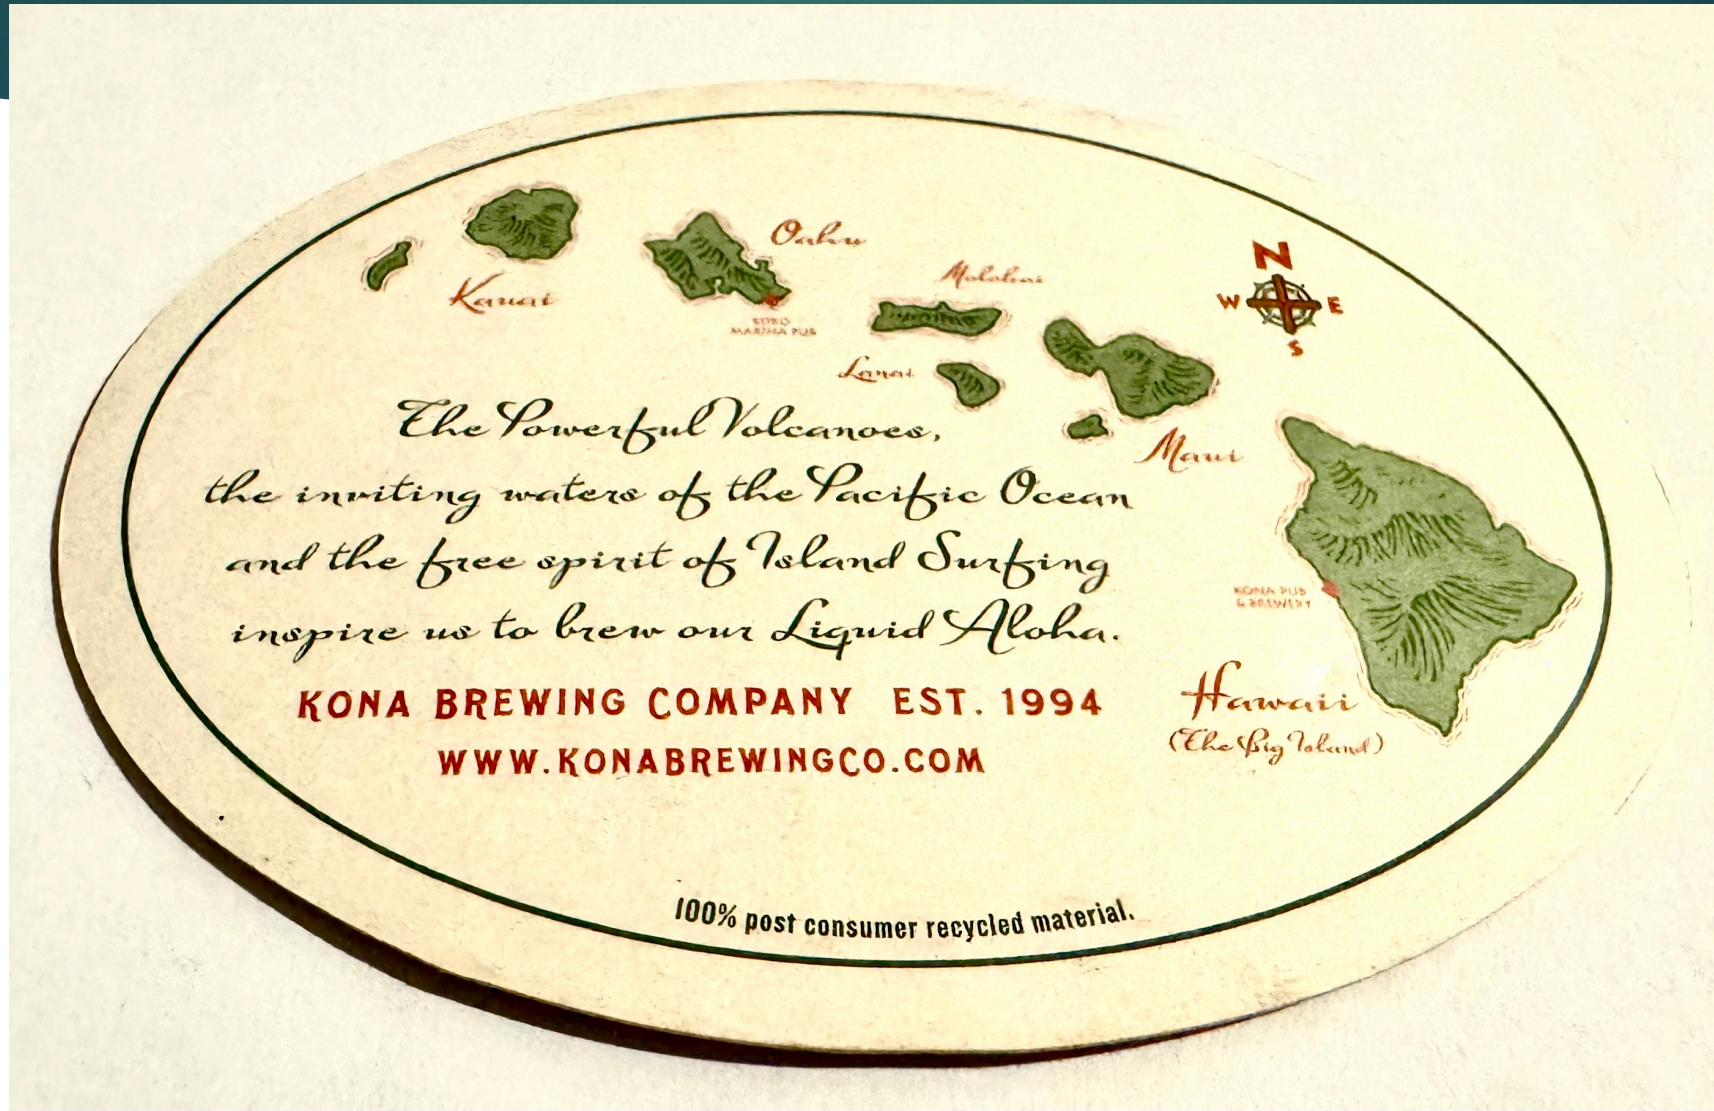 Kauai
Oahu
KOKO
MARINA PUB
Molokai
Lanai
Maui
N
W E
S
The Powerful Volcanoes,
the inviting waters of the Pacific Ocean
and the free spirit of Island Surfing
inspire us to brew our Liquid Aloha.
KONA PUB
& BREWERY
Hawaii
(The Big Island)
KONA BREWING COMPANY EST. 1994
WWW.KONABREWINGCO.COM
100% post consumer recycled material.